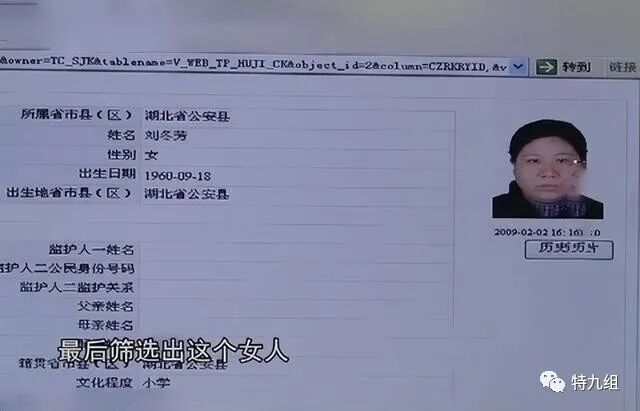 &owner=TC_SJK&tablename=V_WEB_TP_HUJI_CK&object_id=2&column=CZRKRYID,&v 转到 链接
所属省市县（区） 湖北省公安县
姓名 刘冬芳
性别 女
出生日期 1960-09-18
出生地省市县（区） 湖北省公安县
2009-02-02 16:16
历史历片
监护人一姓名
监护人二公民身份号码
监护人二监护关系
父亲姓名
母亲姓名
最后筛选出这个女人
籍贯省市县（区） 湖北省公安县
文化程度 小学
特九组